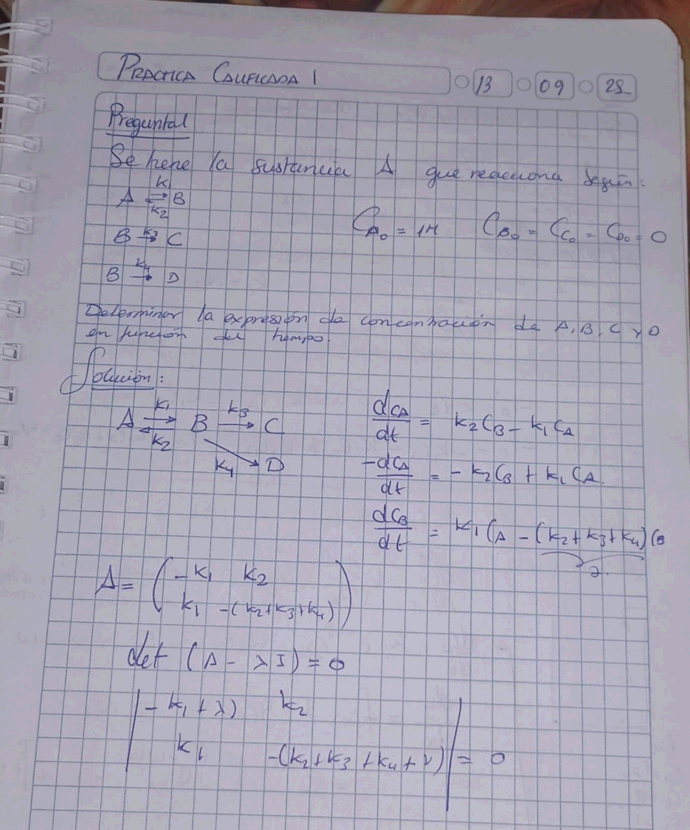 PRACTICA CALIFICADA 1 13 09 25
Pregunta 1
Se tiene la sustancia A que reacciona según:
A ⇌ B k1 k2
B → C k3
B → D k4
CA0 = 1M CB0 = CC0 = CD0 = 0
Determinar la expresión de concentración de A, B, C y D
en función del tiempo.
Solución:
A ⇌ B → C k1 k2 k3
k4 → D
dCA/dt = k2CB - k1CA
-dCA/dt = -k2CB + k1CA
dCB/dt = k1CA - (k2+k3+k4)CB
A = ( -k1 k2
k1 -(k2+k3+k4) )
det (A - λI) = 0
| -k1+λ) k2
k1 -(k2+k3+k4+λ) | = 0